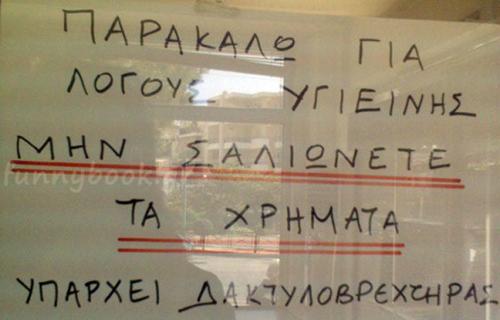 ΠΑΡΑΚΑΛΩ ΓΙΑ
ΛΟΓΟΥΣ ΥΓΙΕΙΝΗΣ
ΜΗΝ ΣΑΛΙΩΝΕΤΕ
ΤΑ ΧΡΗΜΑΤΑ
ΥΠΑΡΧΕΙ ΔΑΚΤΥΛΟΒΡΕΧΤΗΡΑΣ